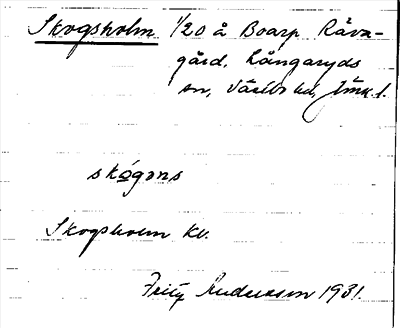 Skogsholm 1/20 å Boarp Räva-
gård, Långaryds
sn, Västbo hd, Jönk. l.
skógøns
Skogsholm kv.
Fritz Andersson 1931.